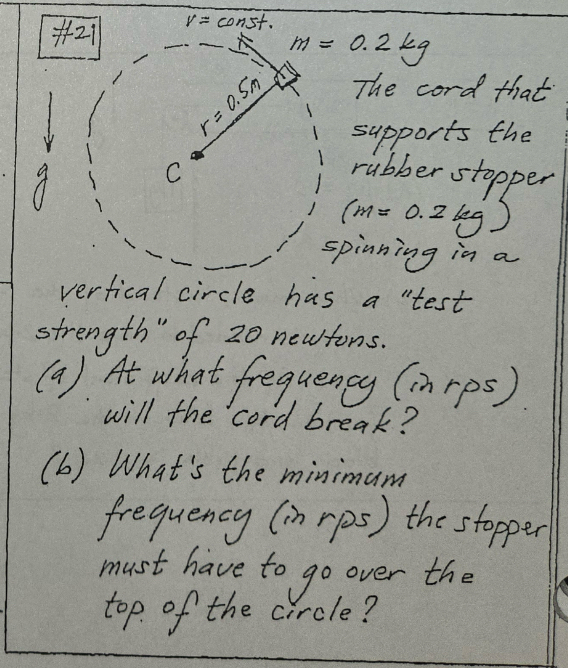 #2i
v = const.
m = 0.2 kg
r = 0.5m
C
g
The cord that
supports the
rubber stopper
(m = 0.2 kg)
spinning in a
vertical circle has a "test
strength" of 20 newtons.
(a) At what frequency (in rps)
will the cord break?
(b) What's the minimum
frequency (in rps) the stopper
must have to go over the
top of the circle?